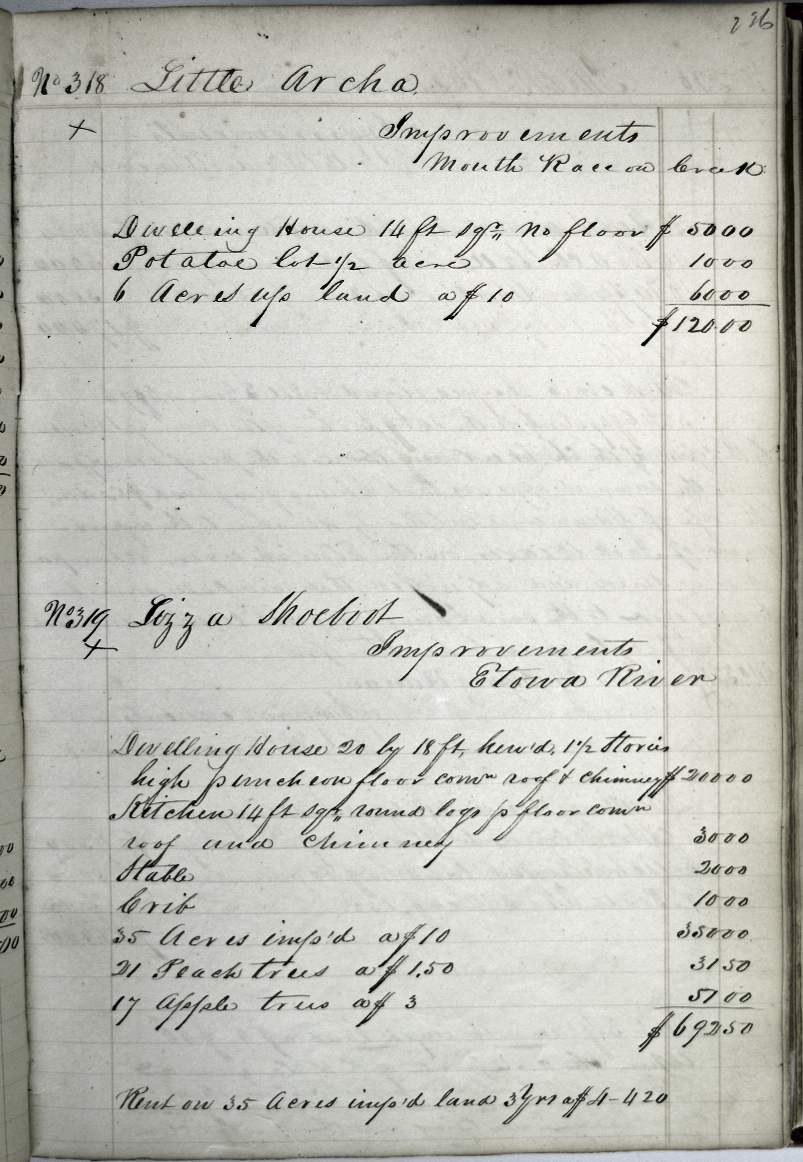 236
No 318 Little Archa
+ Improvements
Mouth Raccoon Creek
Dwelling House 14 ft sqr,, no floor $ 50 00
Potatoe lot 1/2 acre 10 00
6 Acres up land a $ 10 60 00
$ 120.00
No 319 Lizza Shoeboot
+ Improvements
Etowa River
Dwelling House 20 by 18 ft, hew'd, 1 1/2 Stories
high puncheon floor comn roof & chimney $ 200 00
Kitchen 14 ft sqr,, round logs p floor comn
roof and chimney 30 00
Stable 20 00
Crib 10 00
35 Acres imp'd a $ 10 350 00
21 Peach trees a $ 1.50 31 50
17 Apple trees a $ 3 51 00
$ 692 50
Rent on 35 Acres imp'd land 3 Yrs a $ 4 - 420